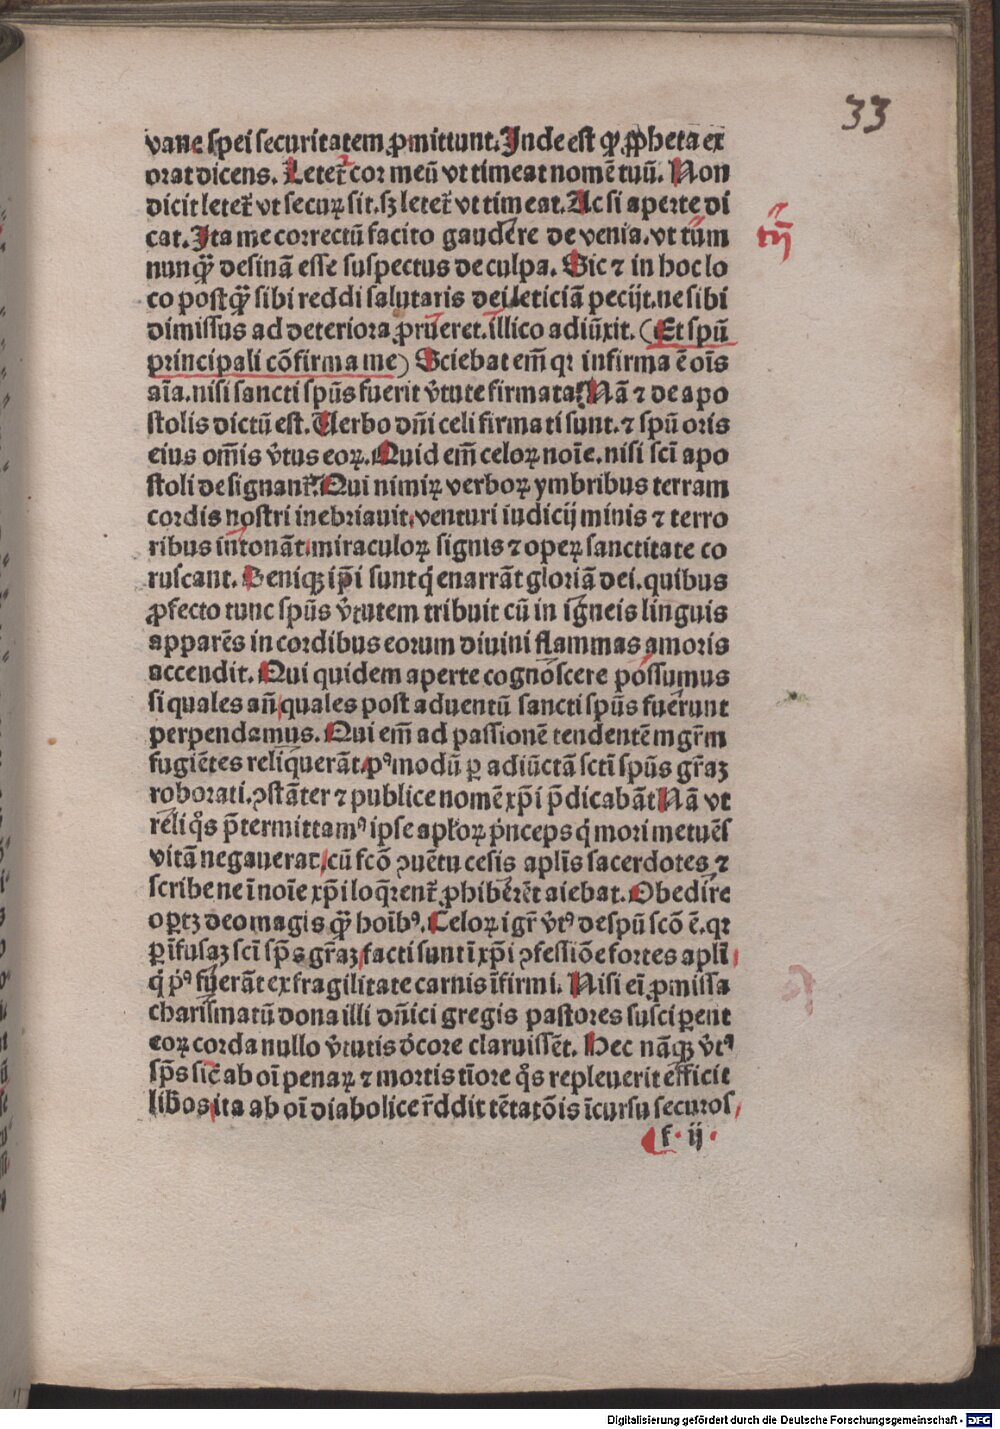 33
vane spei securitatem ꝓmittunt. Inde est qꝛ ꝓpheta ex
orat dicens. Letet᷑ cor meū vt timeat nomē tuū. Non
dicit letet᷑ vt securꝰ sit. sꝫ letet᷑ vt timeat. Ac si aperte di
cat. Ita me correctū facito gaudere de venia. vt tūm
tn̄
nunqꝫ̄ desinā esse suspectus de culpa. Sic ⁊ in hoc lo
co postqꝫ̄ sibi reddi salutaris dei leticiā pecijt. ne sibi
dimissus ad deteriora ꝓrueret. illico adiūxit. (Et spū
principali cōfirma me) Sciebat em̄ qꝛ infirma ē oīs
aīa. nisi sancti spūs fuerit v̓tute firmata. Nā ⁊ de apo
stolis dictū est. Uerbo dn̄i celi firmati sunt. ⁊ spū oris
eius om̄is v̓tus eoꝝ. Quid em̄ celoꝝ noīe. nisi scī apo
stoli designant᷑. Qui nimiꝝ verboꝝ ymbribus terram
cordis nostri inebriauit. venturi iudicij minis ⁊ terro
ribus intonāt. miraculoꝝ signis ⁊ opeꝝ sanctitate co
ruscant. Deniqꝫ ip̄i sunt q̇ enarrāt gloriā dei. quibus
ꝓfecto tunc spūs v̓tutem tribuit cū in igneis linguis
apparēs in cordibus eorum diuini flammas amoris
accendit. Qui quidem aperte cognoscere possumus
si quales an̄ quales post aduentū sancti spūs fuerunt
perpendamus. Qui em̄ ad passionē tendentē mgr̄m
fugiētes reliquerāt. pꝰ modū ꝑ adiūctā scti spūs gr̄aꝫ
roborati. ꝯstāter ⁊ publice nomē xp̄i p̄dicabāt Nā vt
reliq̊s p̄termittamꝰ ipse apl̓oꝝ pͥnceps q̇ mori metuēs
vitā negauerat, cū fcō ꝯuētu cesis apl̄is sacerdotes ⁊
scribe ne ī noīe xp̄i loq̄rent᷑ ꝓhiberēt aiebat. Obedire
oꝑtꝫ deo magis qꝫ̄ hoībꝰ. Celoꝝ igr̄ v̓tꝰ de spū scō ē. qꝛ
ꝑ īfusaꝫ scī sp̄s gr̄aꝫ facti sunt ī xp̄i ꝯfessiōe fortes apl̄i
q̇ pͥꝰ fuerāt ex fragilitate carnis īfirmi. Nisi eī ꝓmissa
charismatū dona illi dn̄ici gregis pastores susciꝑent
eoꝝ corda nullo v̓tutis decore claruissēt. Hec nāqꝫ v̓tꝰ
sp̄s sic̄ ab oī penaꝝ ⁊ mortis tīore q̊s repleuerit efficit
lib̓os ita ab oī diabolice r̄ddit tētatōis īcursu securos
f ij
Digitalisierung gefördert durch die Deutsche Forschungsgemeinschaft - DFG